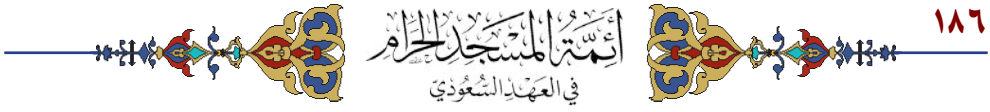 ١٨٦
أَئِمَّةُ المَسْجِدِ الحَرَامِ
في العَهْدِ السُّعُودِيّ